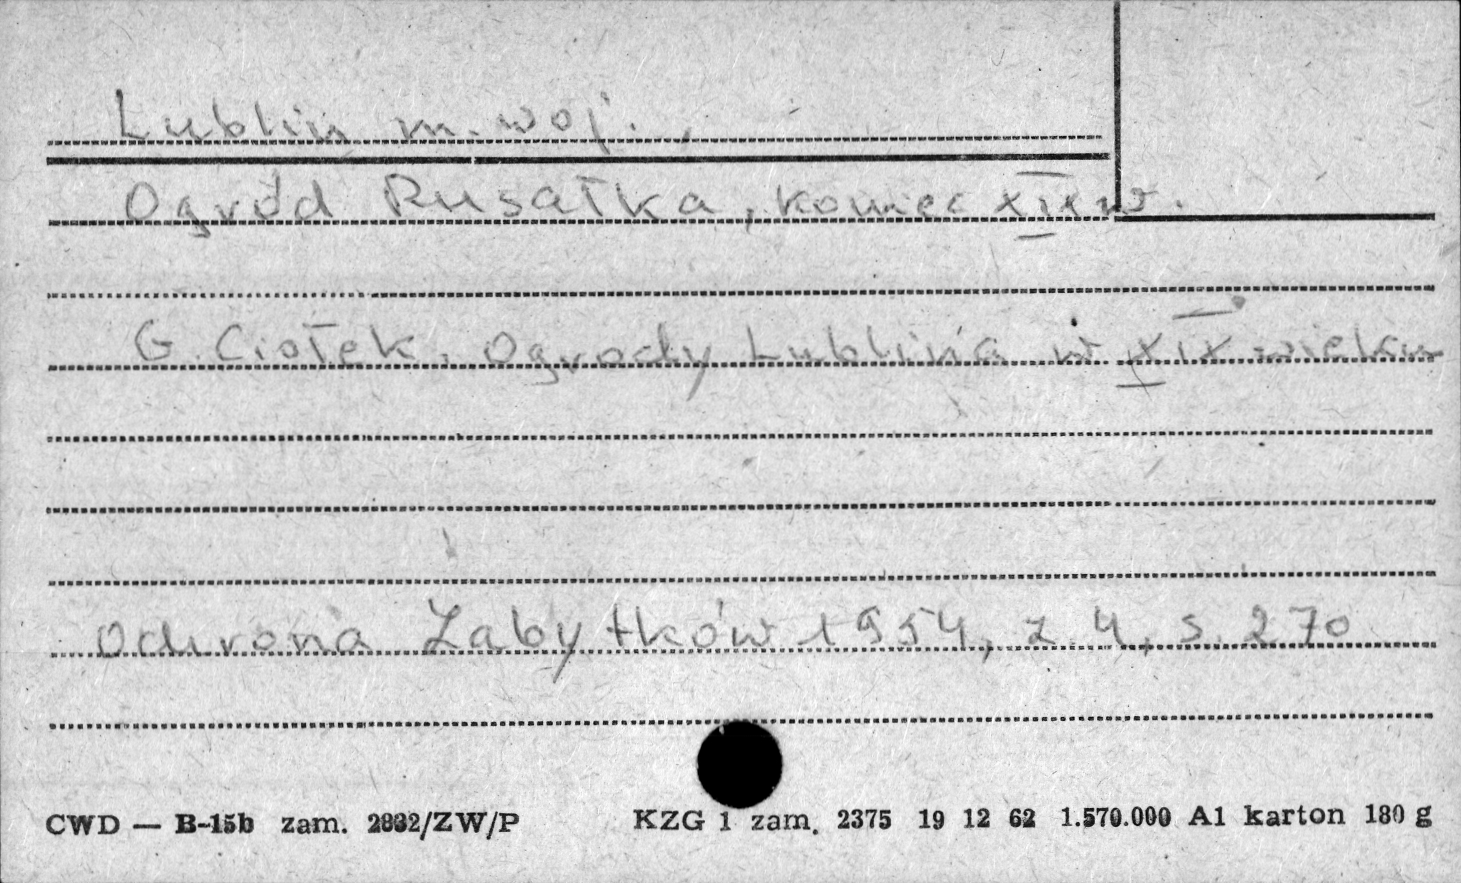 Lublin m. woj.,
Ogród Rusałka, koniec XIX w.
G. Ciołek, Ogrody Lublina w XIX wieku
Ochrona Zabytków 1954, z. 4, s. 270
CWD — B-15b zam. 2832/ZW/P KZG 1 zam. 2375 19 12 62 1.570.000 A1 karton 180 g